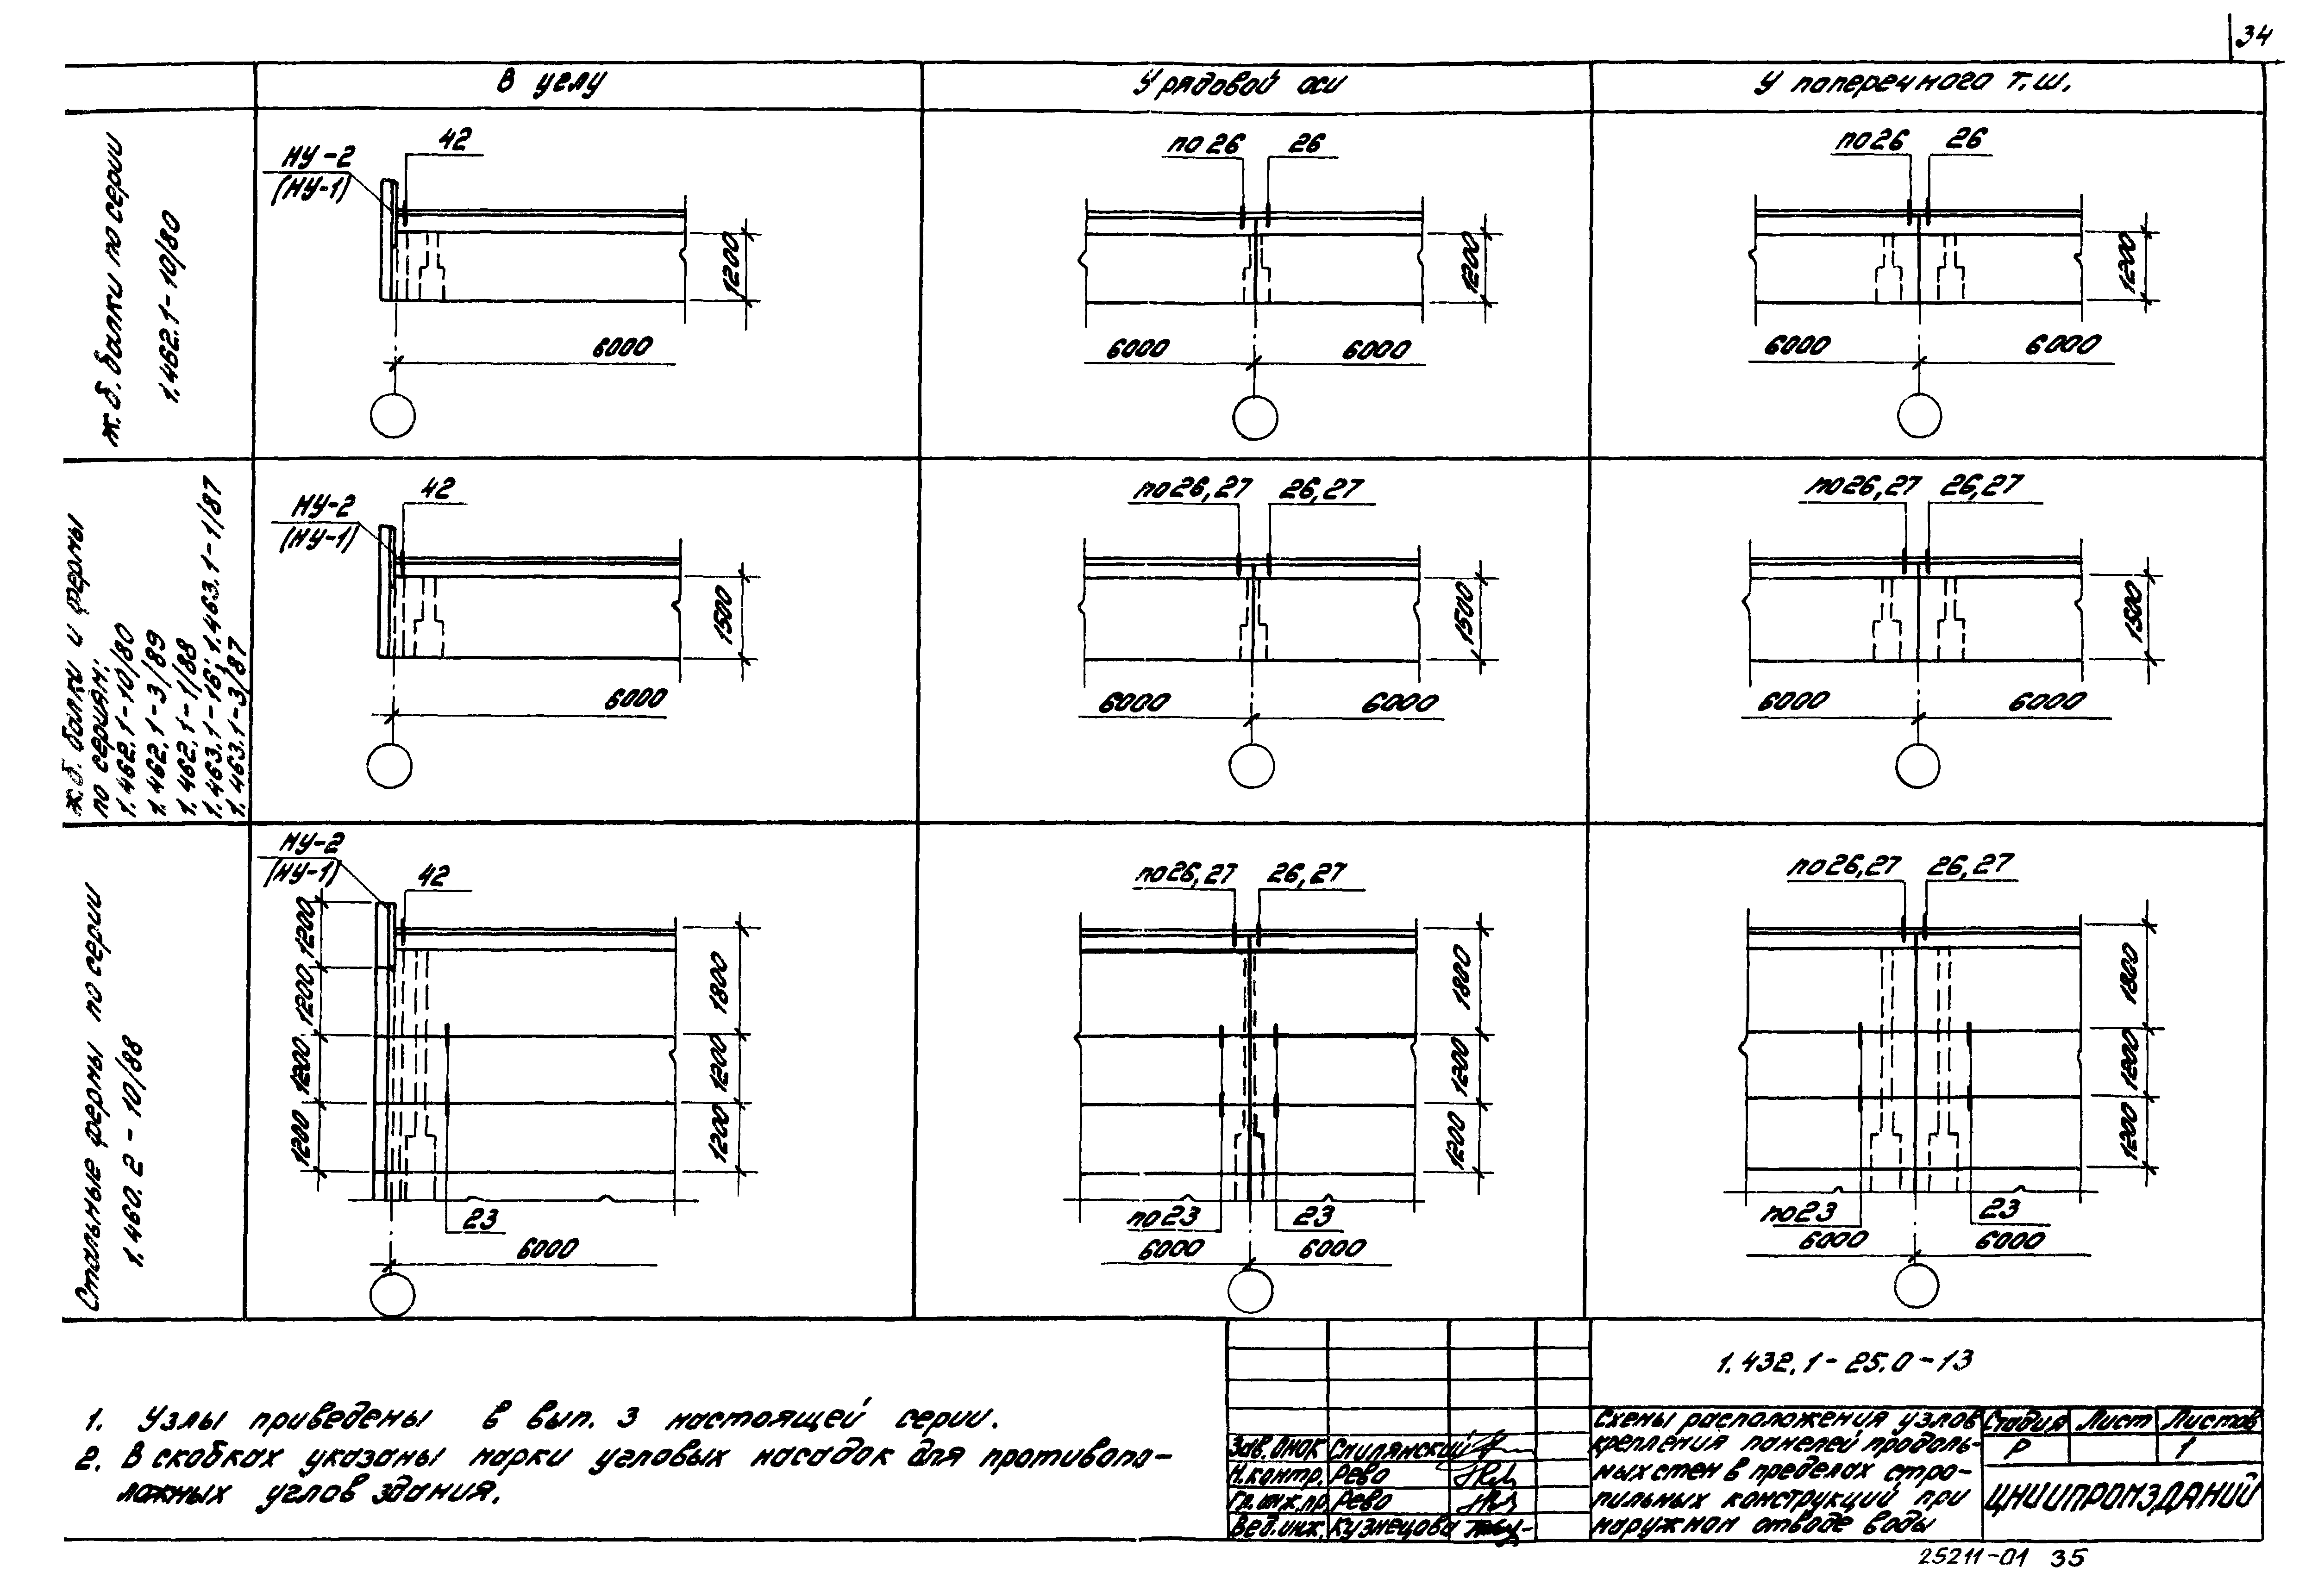 34
В углу
У рядовой оси
У поперечного т.ш.
ж.б. балки по серии
1.462.1-10/80
НУ-2
(НУ-1)
42
1200
6000
по 26
26
1200
6000
6000
по 26
26
1200
6000
6000
ж.б. балки и фермы
по сериям:
1.462.1-10/80
1.462.1-3/89
1.462.1-1/88
1.463.1-16; 1.463.1-1/87
1.463.1-3/87
НУ-2
(НУ-1)
42
1500
6000
по 26,27
26,27
1500
6000
6000
по 26,27
26,27
1500
6000
6000
Стальные фермы по серии
1.460.2-10/88
НУ-2
(НУ-1)
42
1200
1200
1200
1200
1800
1200
1200
23
6000
по 26,27
26,27
1800
1200
1200
по 23
23
6000
6000
по 26,27
26,27
1800
1200
1200
по 23
23
6000
6000
1. Узлы приведены в вып. 3 настоящей серии.
2. В скобках указаны марки угловых насадок для противопо-
ложных углов здания.
1.432.1-25.0-13
Зав. ОНОК Спилянский
Н.контр. Рево
Гр.инж.пр. Рево
Вед.инж. Кузнецова
Схемы расположения узлов
крепления панелей продоль-
ных стен в пределах стро-
пильных конструкций при
наружном отводе воды
Стадия Лист Листов
Р 1
ЦНИИПРОМЗДАНИЙ
25211-01 35